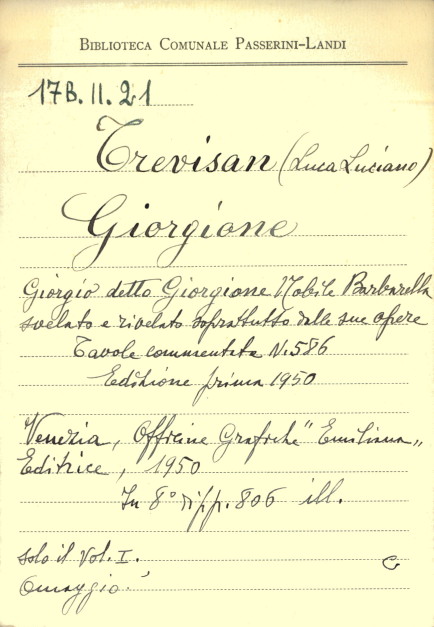 BIBLIOTECA COMUNALE PASSERINI-LANDI
17B.II.21
Trevisan (Luca Luciano)
Giorgione
Giorgio detto Giorgione Nobile Barbarella
svelato e rivelato soprattutto dalle sue opere
Tavole commentate N. 586
Edizione prima 1950
Venezia, Officine Grafiche "Emiliana„
Editrice, 1950
In 8° di pp. 806 ill.
solo il Vol. I.
C
Omaggio